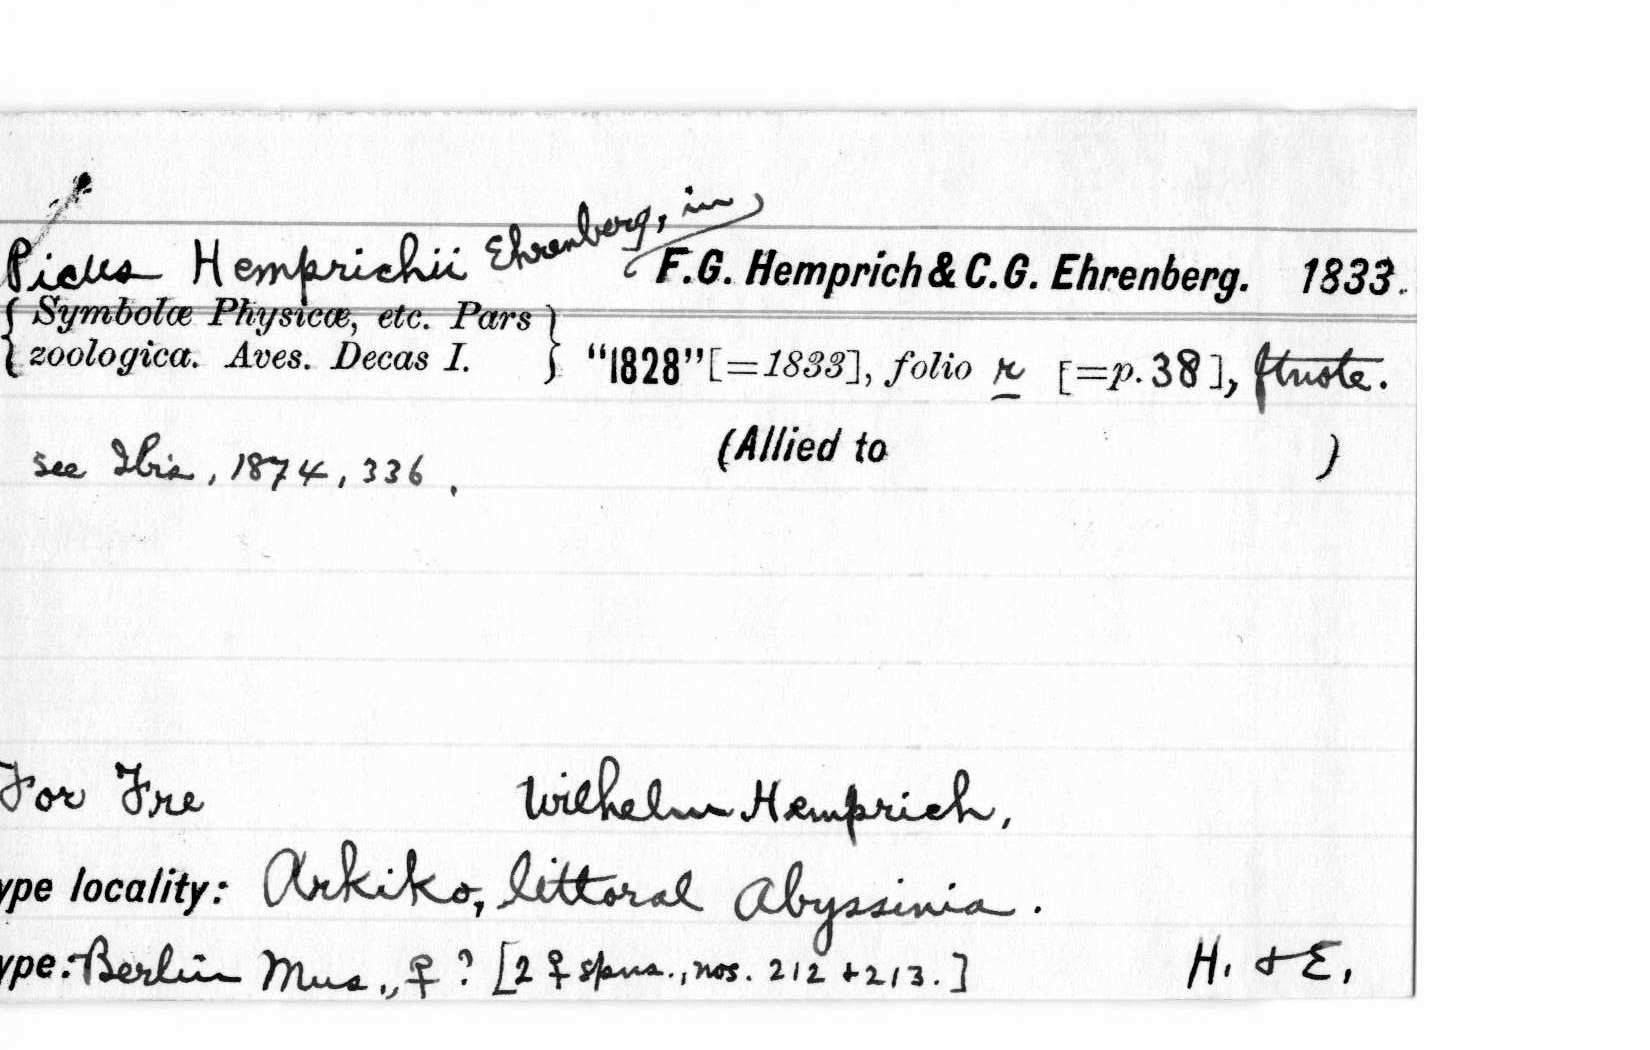 Picus Hemprichii Ehrenberg, in F.G. Hemprich & C.G. Ehrenberg. 1833.
{Symbolæ Physicæ, etc. Pars
zoologica. Aves. Decas I.} "1828" [=1833], folio r [=p. 38], ftnote.
(Allied to )
see Ibis, 1874, 336.
For Fre Wilhelm Hemprich,
ype locality: Arkiko, littoral Abyssinia.
ype: Berlin Mus., ♀? [2 ♀ spns., nos. 212 + 213.] H. & E.